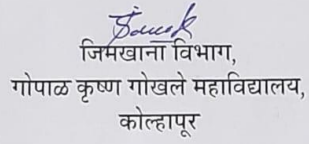 जिमखाना विभाग,
गोपाळ कृष्ण गोखले महाविद्यालय,
कोल्हापूर